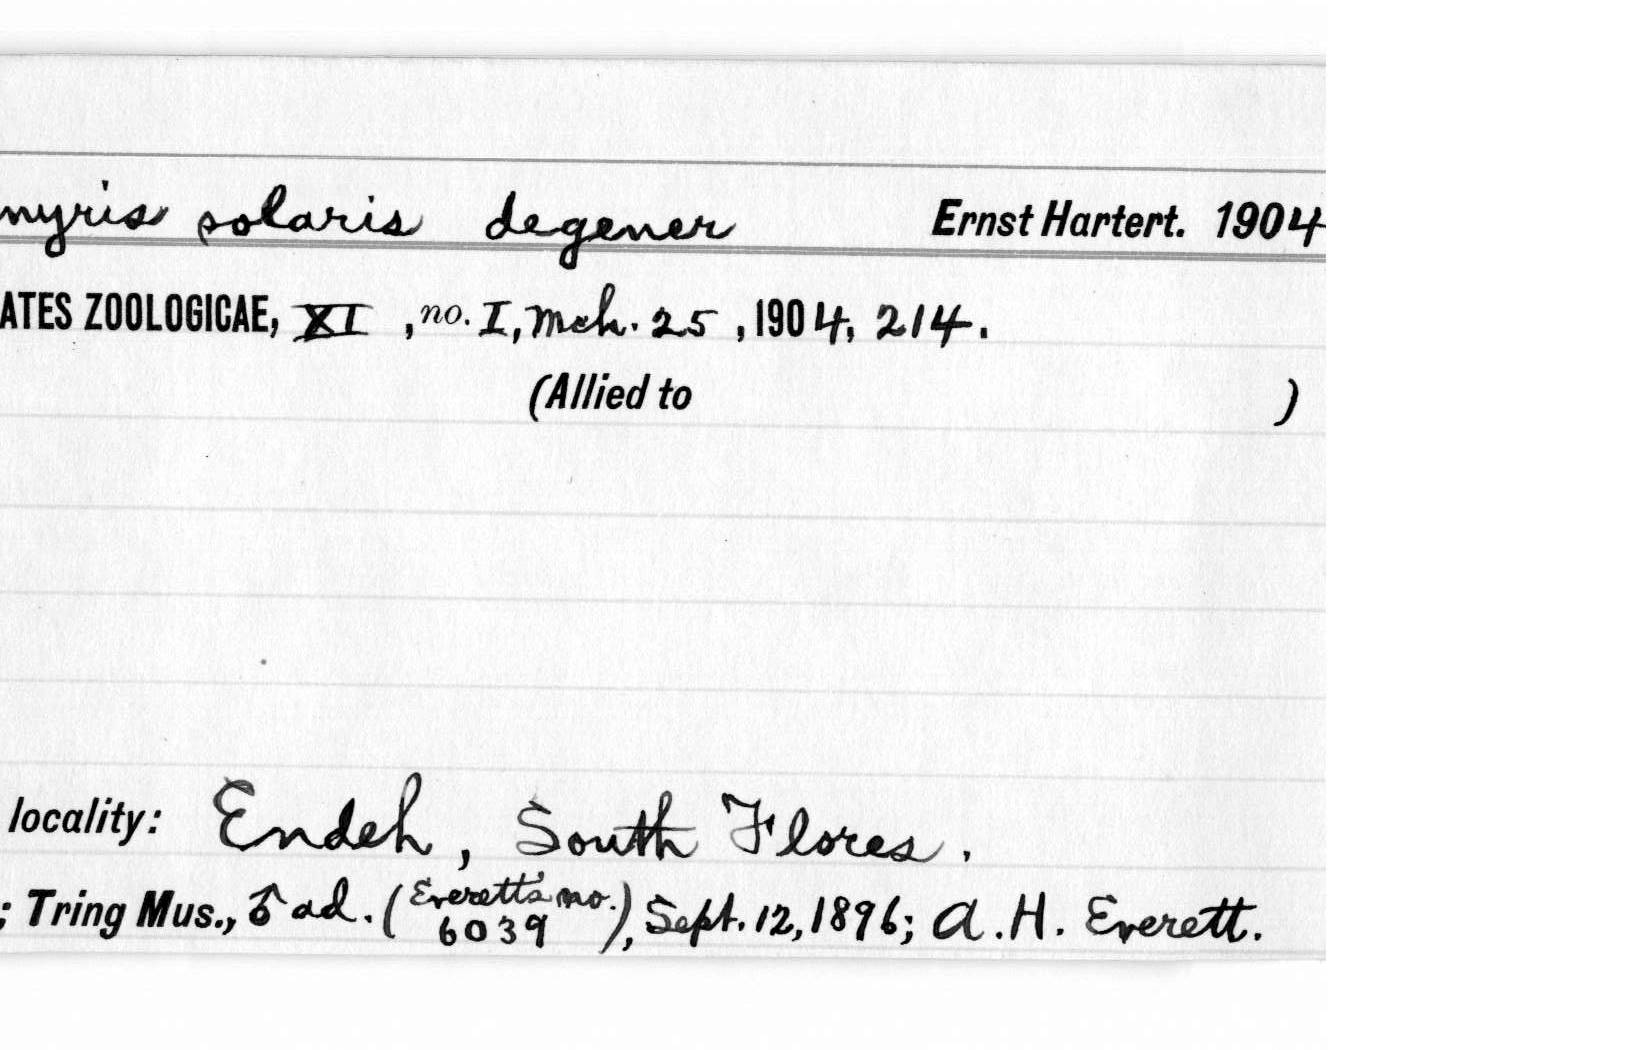 nyris solaris degener Ernst Hartert. 1904
ATES ZOOLOGICAE, XI, no. I, Mch. 25, 1904, 214.
(Allied to )
locality: Endeh, South Flores.
; Tring Mus., ♂ ad. (Everett's no. 6039), Sept. 12, 1896; A. H. Everett.